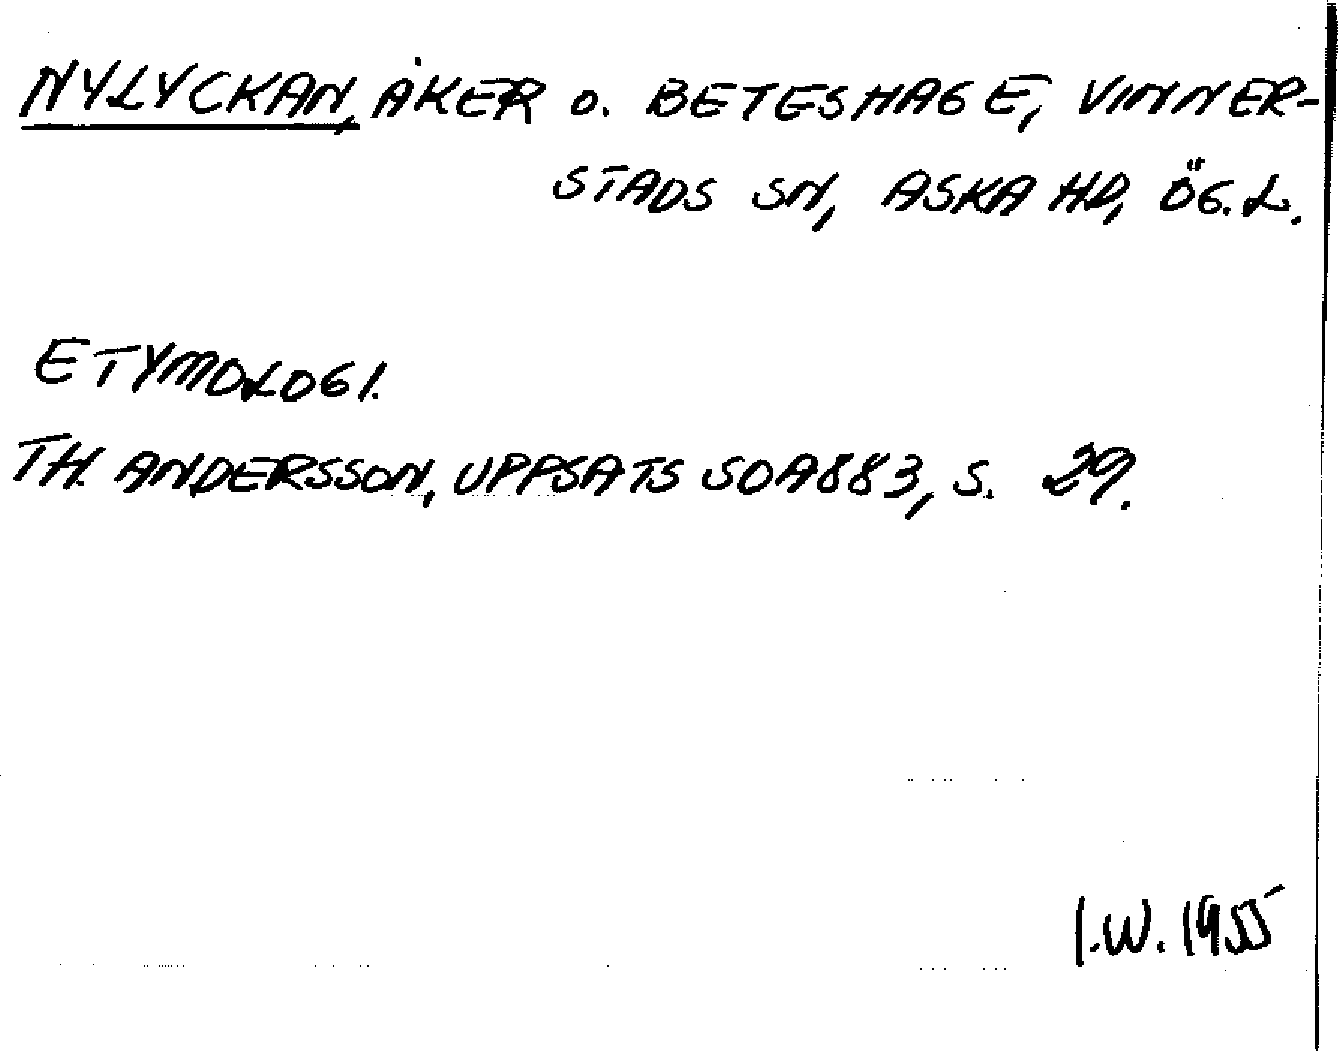 NYLYCKAN, ÅKER o. BETESHAGE, VINNER-
STADS SN, ASKA HD, ÖG. L.
ETYMOLOGI.
TH. ANDERSSON, UPPSATS SOA883, S. 29.
I.W. 1955